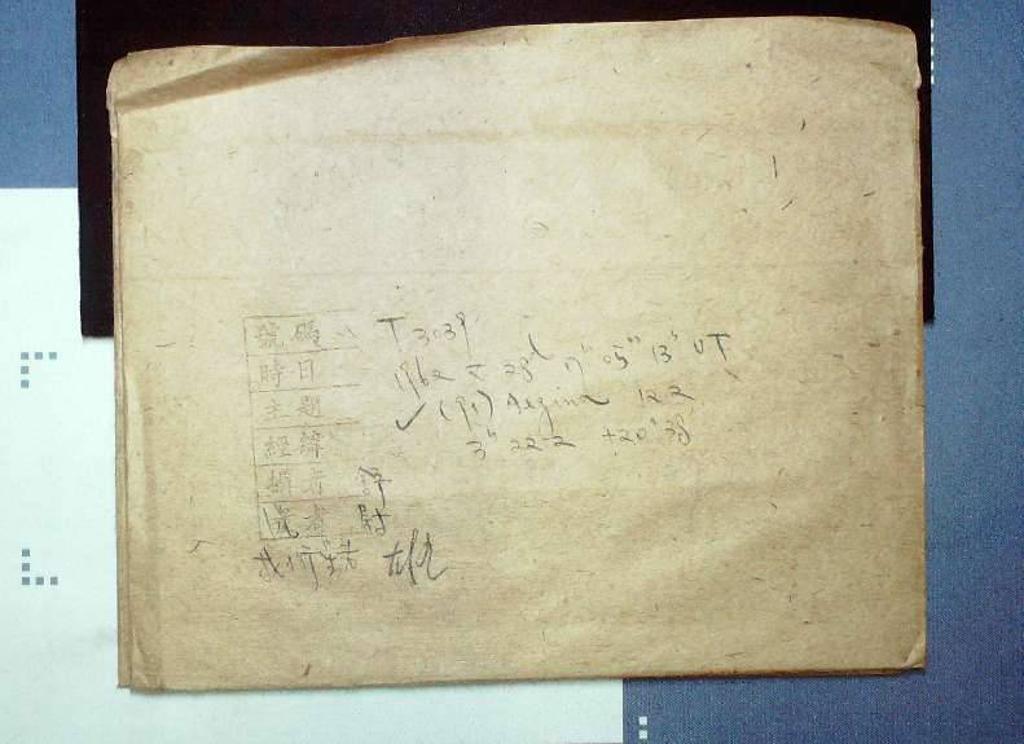 號碼 T 3039
時日 1962 X 28ᵈ 17ʰ 05ᵐ 13ˢ UT
主題 ✓ (91) Aegina 12.2
經緯 3ʰ 22.2 +20°38
攝者 許
尉